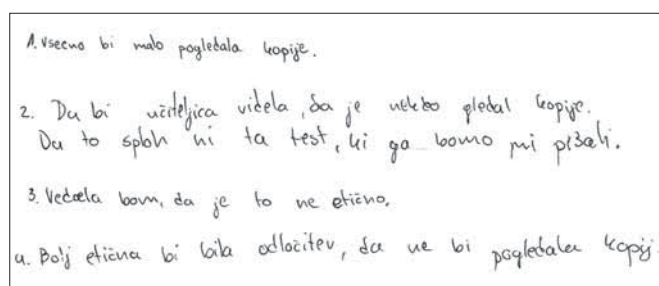 1. Vseeno bi malo pogledala kopije.
2. Da bi učiteljica videla, da je nekdo gledal kopije.
Da to sploh ni ta test, ki ga bomo mi pisali.
3. Vedela bom, da je to ne etično.
4. Bolj etična bi bila odločitev, da ne bi pogledala kopij.